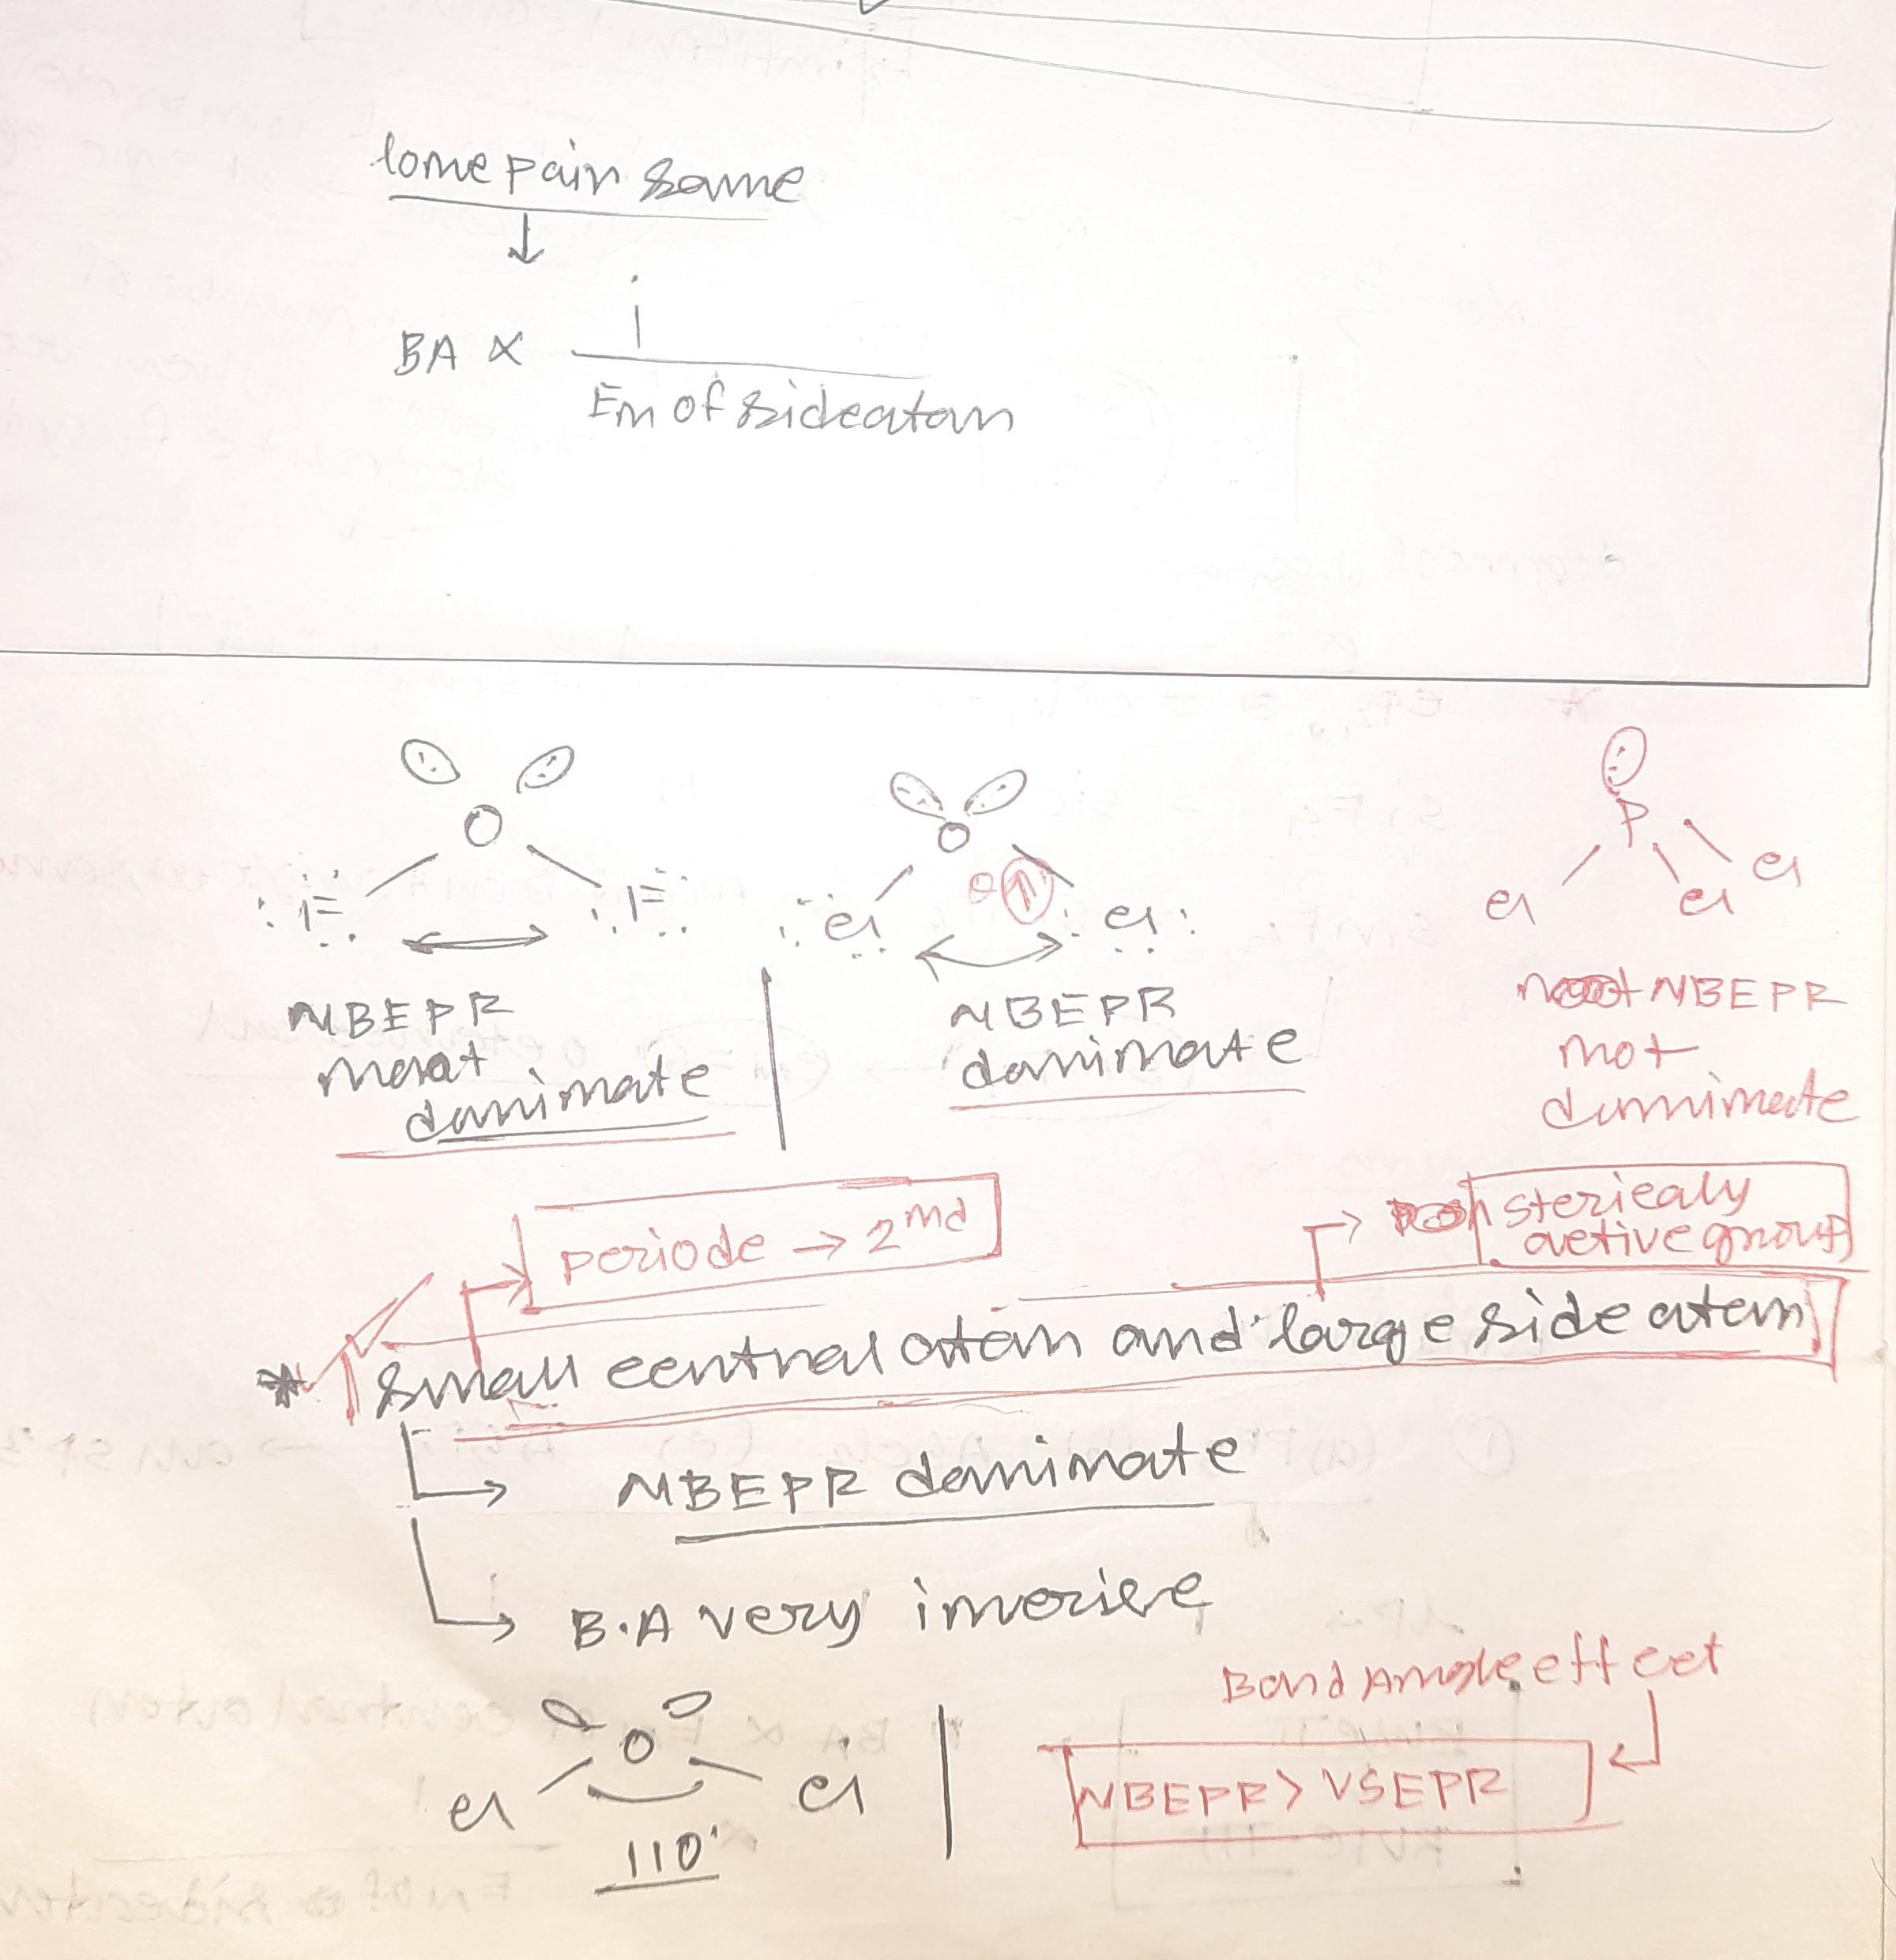 lone pair same
↓
BA ∝ 1
En of side atom
O
:F: :F:
NBEPR
not
dominate
O
θ↑
:Cl: :Cl:
NBEPR
dominate
P
Cl Cl Cl
NBEPR
not
dominate
periode → 2nd
→ stericaly
active group
* small central atom and large side atom
→ NBEPR dominate
→ B.A very
O
Cl Cl
110°
Bond Angle effect
NBEPR > VSEPR